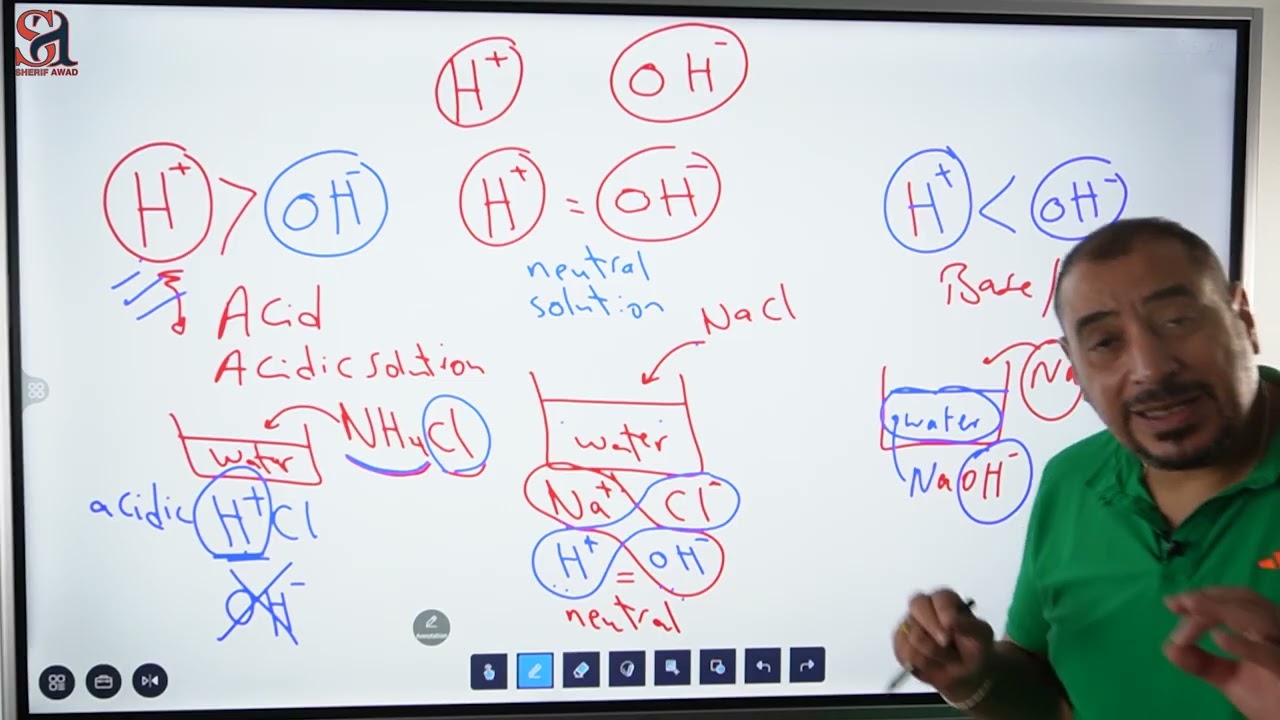 SA
SHERIF AWAD
H⁺ OH⁻
H⁺ > OH⁻
Acid
Acidic solution
NH₄Cl
water
acidic H⁺Cl
OH⁻
H⁺ = OH⁻
neutral
solution
NaCl
water
Na⁺ Cl⁻
H⁺ = OH⁻
neutral
H⁺ < OH⁻
Base /
Na
water
NaOH⁻
Annotation